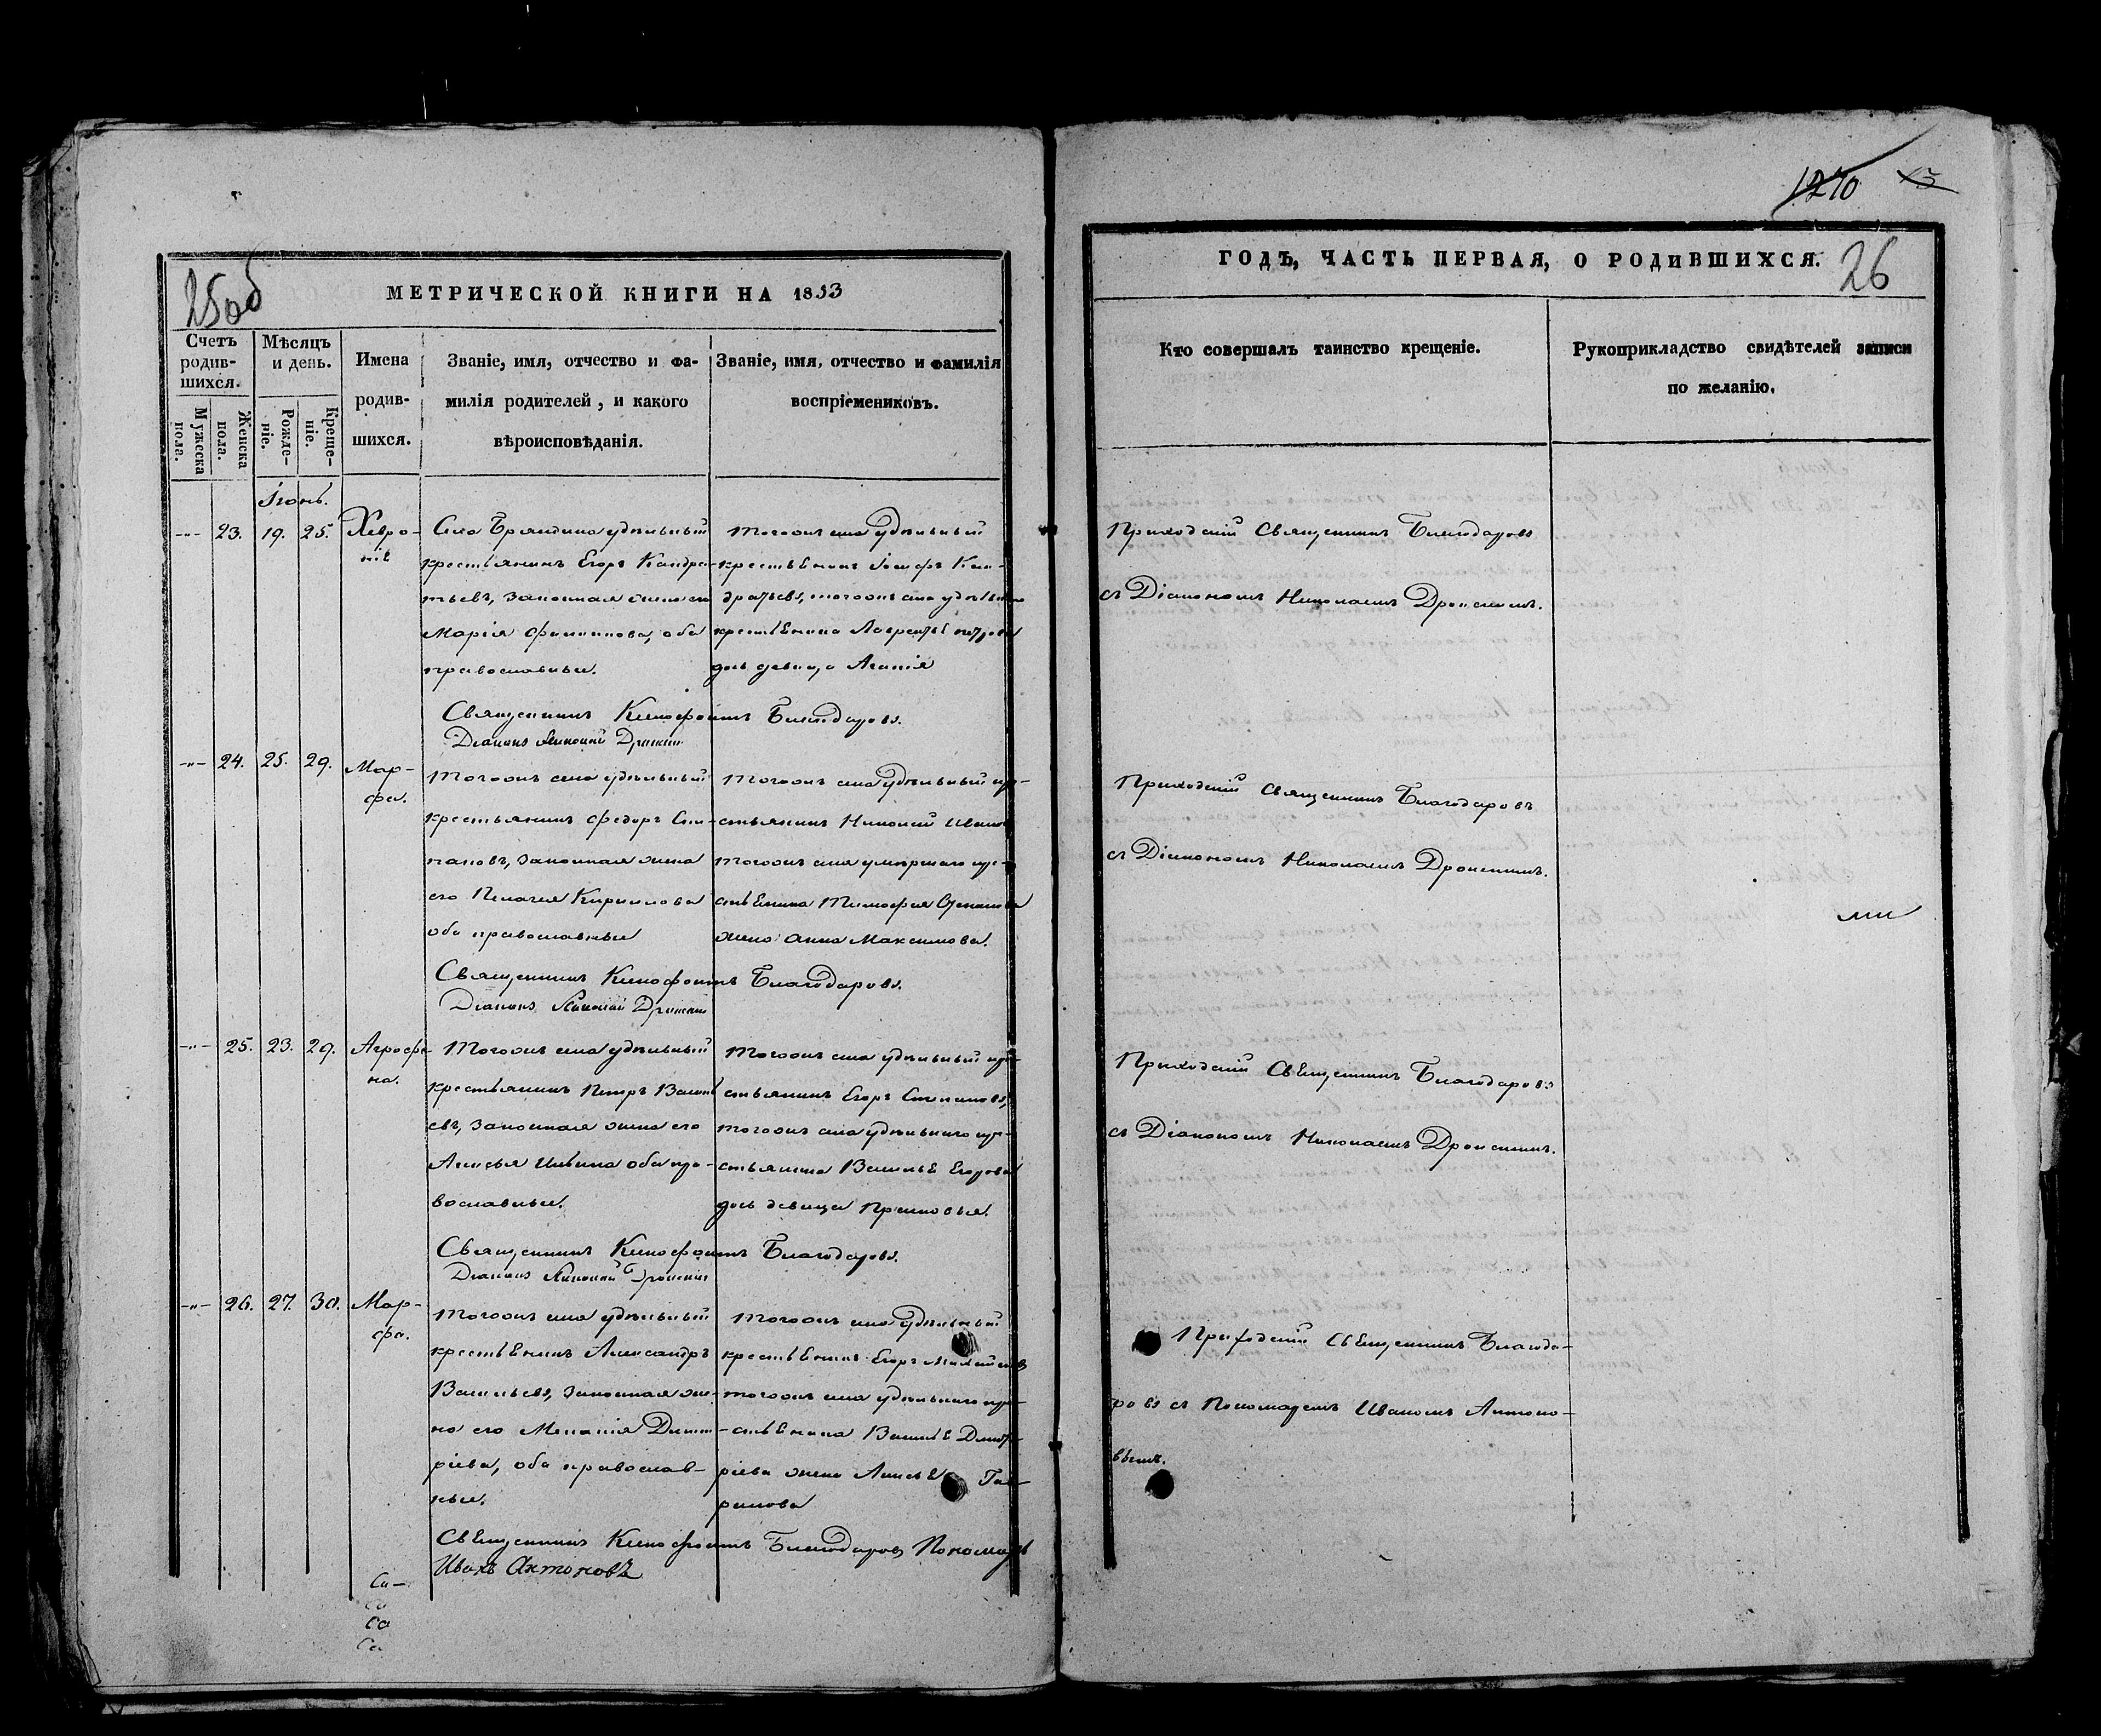 25об
МЕТРИЧЕСКОЙ КНИГИ НА 1853
Счетъ родив-шихся.
Мужеска пола.
Женска пола.
Мѣсяцъ и день.
Рожде-ніе.
Креще-ніе.
Имена родив-шихся.
Званіе, имя, отчество и фа-
милія родителей, и какого
вѣроисповѣданія.
Званіе, имя, отчество и фамилія
воспріемниковъ.
Іюнь.
23. 19. 25. Хевро-
нія
Села Бряндина удѣльный
крестьянинъ Егоръ Кандра-
тьевъ, законная жена его
Марія Филипова, оба
православные.
Тогожъ села удѣльный
крестьянинъ Іосифъ Кан-
дратьевъ, тогожъ села удѣльнаго
крестьянина Лаврентья Петрова
дочь девица Агапія
Священникъ Ксенофонтъ Благодаровъ.
Діаконъ Николай Дронинъ
24. 25. 29. Мар-
фа.
Тогожъ села удѣльный
крестьянинъ Федоръ Сте-
пановъ, законная жена
его Пелагея Кирилова
оба православные
Тогожъ села удѣльный кре-
стьянинъ Николай Ивановъ
тогожъ села умершаго кре-
стьянина Тимофея
жена Анна Максимова.
Священникъ Ксенофонтъ Благодаровъ.
Діаконъ Николай Дронинъ
25. 23. 29. Агрофе-
на.
Тогожъ села удѣльный
крестьянинъ Петръ Василь
евъ, законная жена его
Алисья Ильина оба пра-
вославные.
Тогожъ села удѣльный кре-
стьянинъ Егоръ Степановъ,
тогожъ села удѣльнаго кре-
стьянина Василья Егорова
дочь девица Прасковья.
Священникъ Ксенофонтъ Благодаровъ.
Діаконъ Николай Дронинъ
26. 27. 30. Мар-
фа.
Тогожъ села удѣльный
крестьянинъ Александръ
Васильевъ, законная же-
на его Меланія Дмит-
ріева, оба православ-
ные.
Тогожъ села удѣльный
крестьянинъ Егоръ
тогожъ села удѣльнаго кре-
стьянина Василья Дмит-
ріева жена Алисья Гав-
рилова
Священникъ Ксенофонтъ Благодаровъ Пономарь
Иванъ Антоновъ
Са-
Са
Са
Са
1270
13
ГОДЪ, ЧАСТЬ ПЕРВАЯ, О РОДИВШИХСЯ.
26
Кто совершалъ таинство крещеніе.
Рукоприкладство свидѣтелей записи
по желанію.
Приходскій Священникъ Благодаровъ
съ Діакономъ Николаемъ Дронинымъ.
Приходскій Священникъ Благодаровъ
съ Діакономъ Николаемъ Дронинымъ.
ми
Приходскій Священникъ Благодаровъ
съ Діакономъ Николаемъ Дронинымъ.
Приходскій Священникъ Благода-
ровъ съ Пономаремъ Иваномъ Антоно-
вымъ.